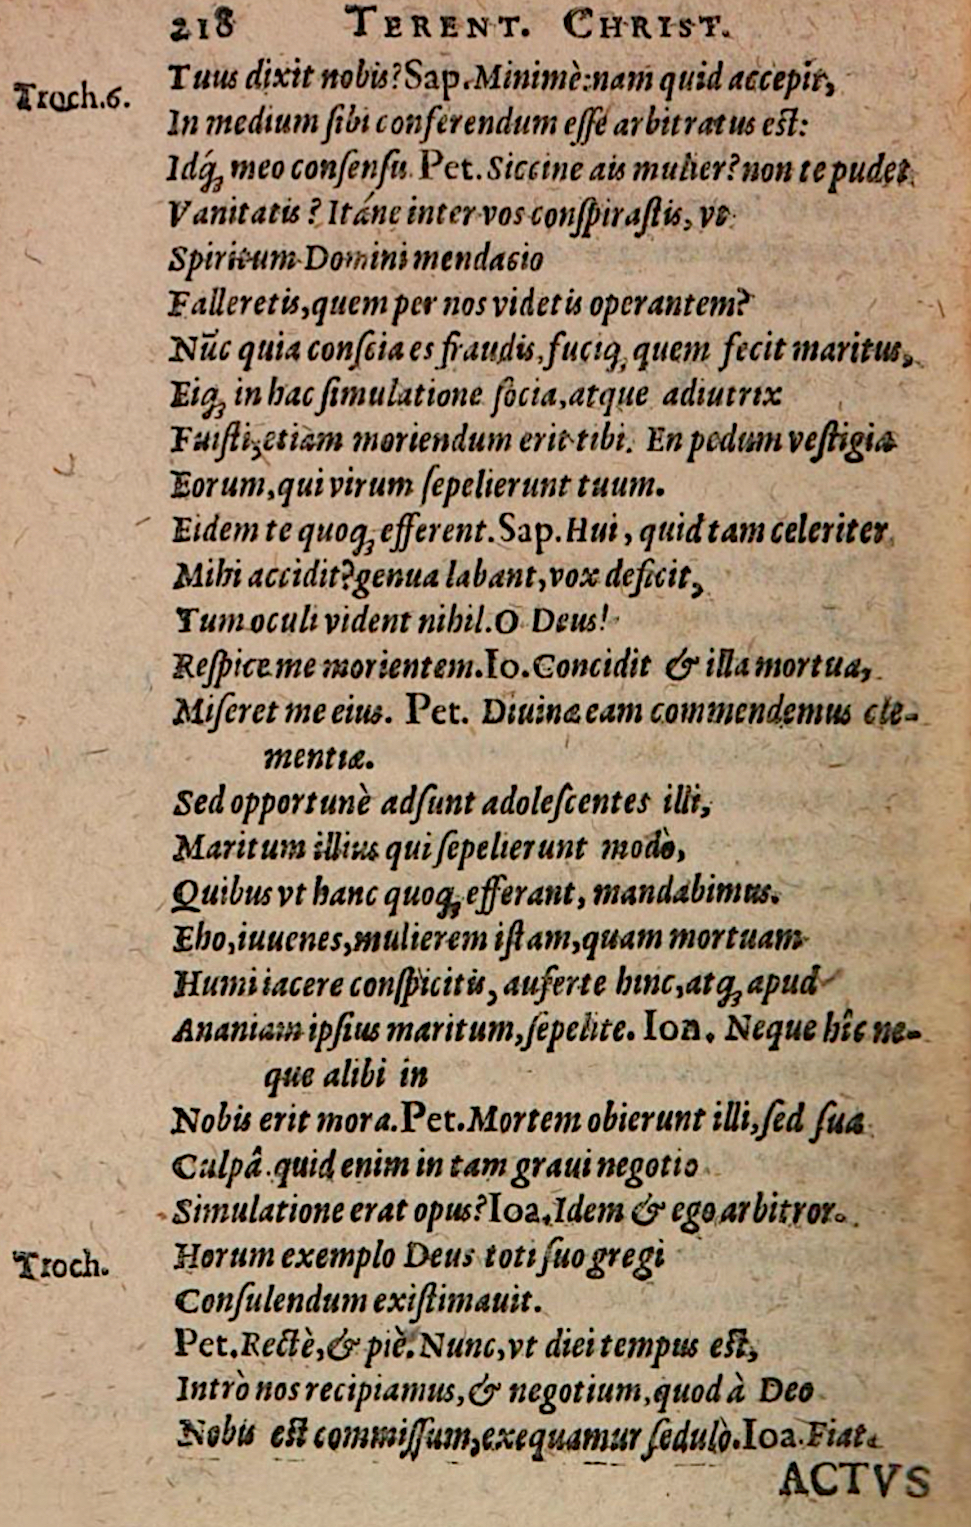 218 TERENT. CHRIST.
Tuus dixit nobis? Sap. Minimè: nam quid accepit,
Troch.6.
In medium ſibi conferendum eſſe arbitratus eſt:
Idq́ꝫ meo conſenſu. Pet. Siccine ais mulier? non te pudet
Vanitatis? Itáne inter vos conſpiraſtis, vt
Spiritum Domini mendacio
Falleretis, quem per nos videtis operantem?
Nūc quia conſcia es fraudis, fuciqꝫ, quem fecit maritus,
Eiqꝫ in hac ſimulatione ſocia, atque adiutrix
Fuiſti, etiam moriendum erit tibi. En pedum veſtigia
Eorum, qui virum ſepelierunt tuum.
Eidem te quoqꝫ efferent. Sap. Hui, quid tam celeriter
Mihi accidit? genua labant, vox deficit,
Tum oculi vident nihil. O Deus!
Reſpice me morientem. Io. Concidit & illa mortua,
Miſeret me eius. Pet. Diuinæ eam commendemus cle-
mentiæ.
Sed opportunè adſunt adoleſcentes illi,
Maritum illius qui ſepelierunt modò,
Quibus vt hanc quoqꝫ efferant, mandabimus.
Eho, iuuenes, mulierem iſtam, quam mortuam
Humi iacere conſpicitis, auferte hinc, atqꝫ apud
Ananiam ipſius maritum, ſepelite. Ioa. Neque hîc ne-
que alibi in
Nobis erit mora. Pet. Mortem obierunt illi, ſed ſua
Culpâ. quid enim in tam graui negotio
Simulatione erat opus? Ioa. Idem & ego arbitror.
Horum exemplo Deus toti ſuo gregi
Troch.
Conſulendum exiſtimauit.
Pet. Rectè, & piè. Nunc, vt diei tempus eſt,
Intrò nos recipiamus, & negotium, quod à Deo
Nobis eſt commiſſum, exequamur ſedulò. Ioa. Fiat.
ACTVS